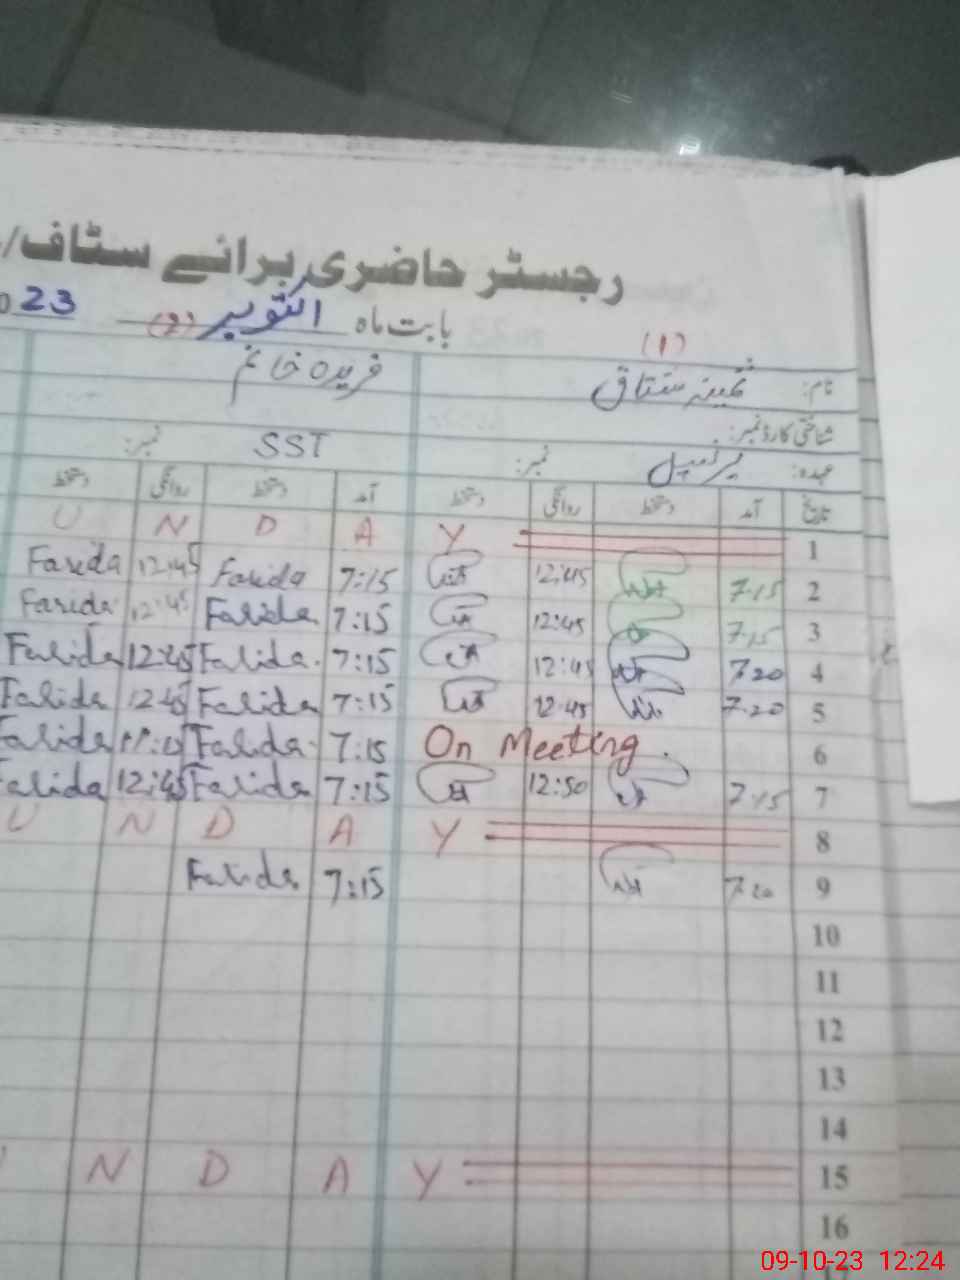 رجسٹر حاضری برائے سٹاف/
بابت ماہ اکتوبر 023
(1) (2)
نام: ثمینہ مشتاق فریدہ خانم
شناختی کارڈ نمبر:
عہدہ: پرنسپل نمبر: SST نمبر:
تاریخ آمد دستخط روانگی دستخط آمد دستخط روانگی دستخط
1 Y A D N U
2 7.15 12:45 7:15 Farida 12:45 Farida
3 7.15 12:45 7:15 Farida 12:45 Farida
4 7.20 12:45 7:15 Farida 12:45 Farida
5 7.20 12:45 7:15 Farida 12:45 Farida
6 On Meeting. 7:15 Farida Farida
7 7.15 12:50 7:15 Farida 12:45 Farida
8 Y A D N U
9 7.20 7:15 Farida
10
11
12
13
14
15 Y A D N
16
09-10-23 12:24